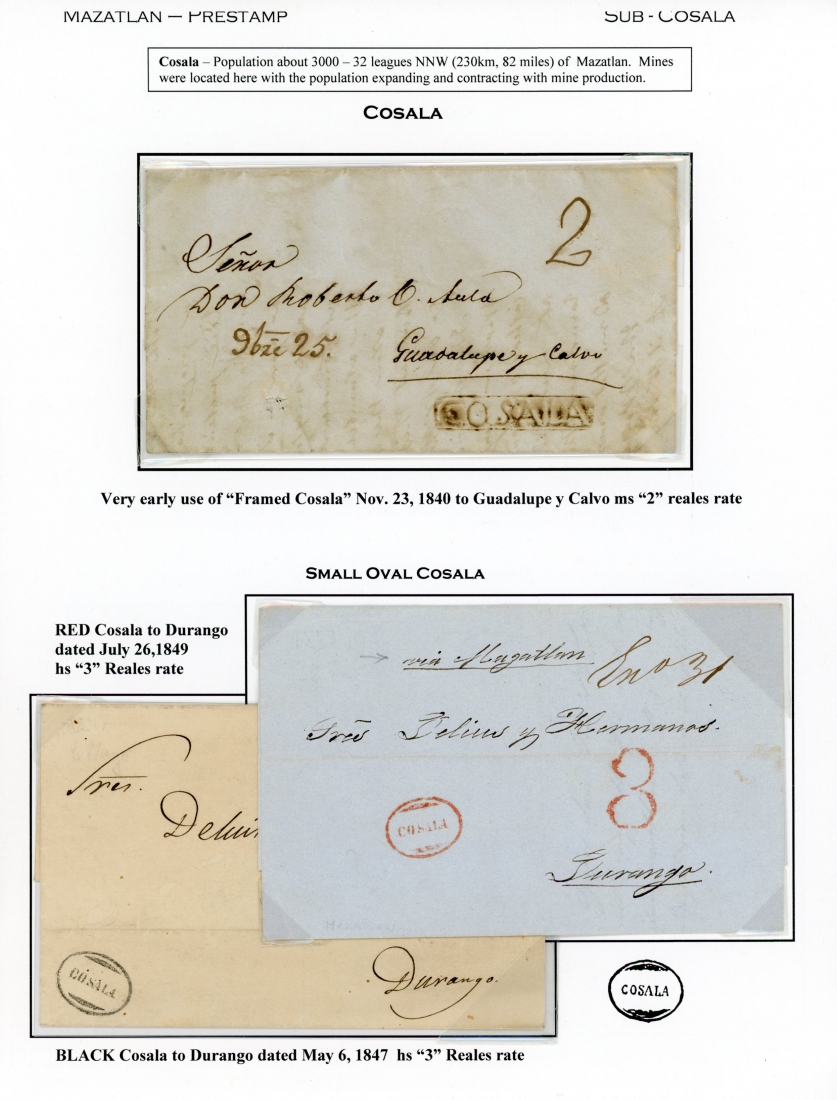 MAZATLAN — PRESTAMP
SUB - COSALA
Cosala – Population about 3000 – 32 leagues NNW (230km, 82 miles) of Mazatlan. Mines
were located here with the population expanding and contracting with mine production.
COSALA
2
Señor
Don Roberto C. Auld
9bre 25.
Guadalupe y Calvo
COSALA
Very early use of “Framed Cosala” Nov. 23, 1840 to Guadalupe y Calvo ms “2” reales rate
SMALL OVAL COSALA
RED Cosala to Durango
dated July 26,1849
hs “3” Reales rate
via Mazatlan
Eno 31
Sres Delius y Hermanos.
COSALA
Durango.
Sres.
Delius
COSALA
Durango.
COSALA
BLACK Cosala to Durango dated May 6, 1847 hs “3” Reales rate